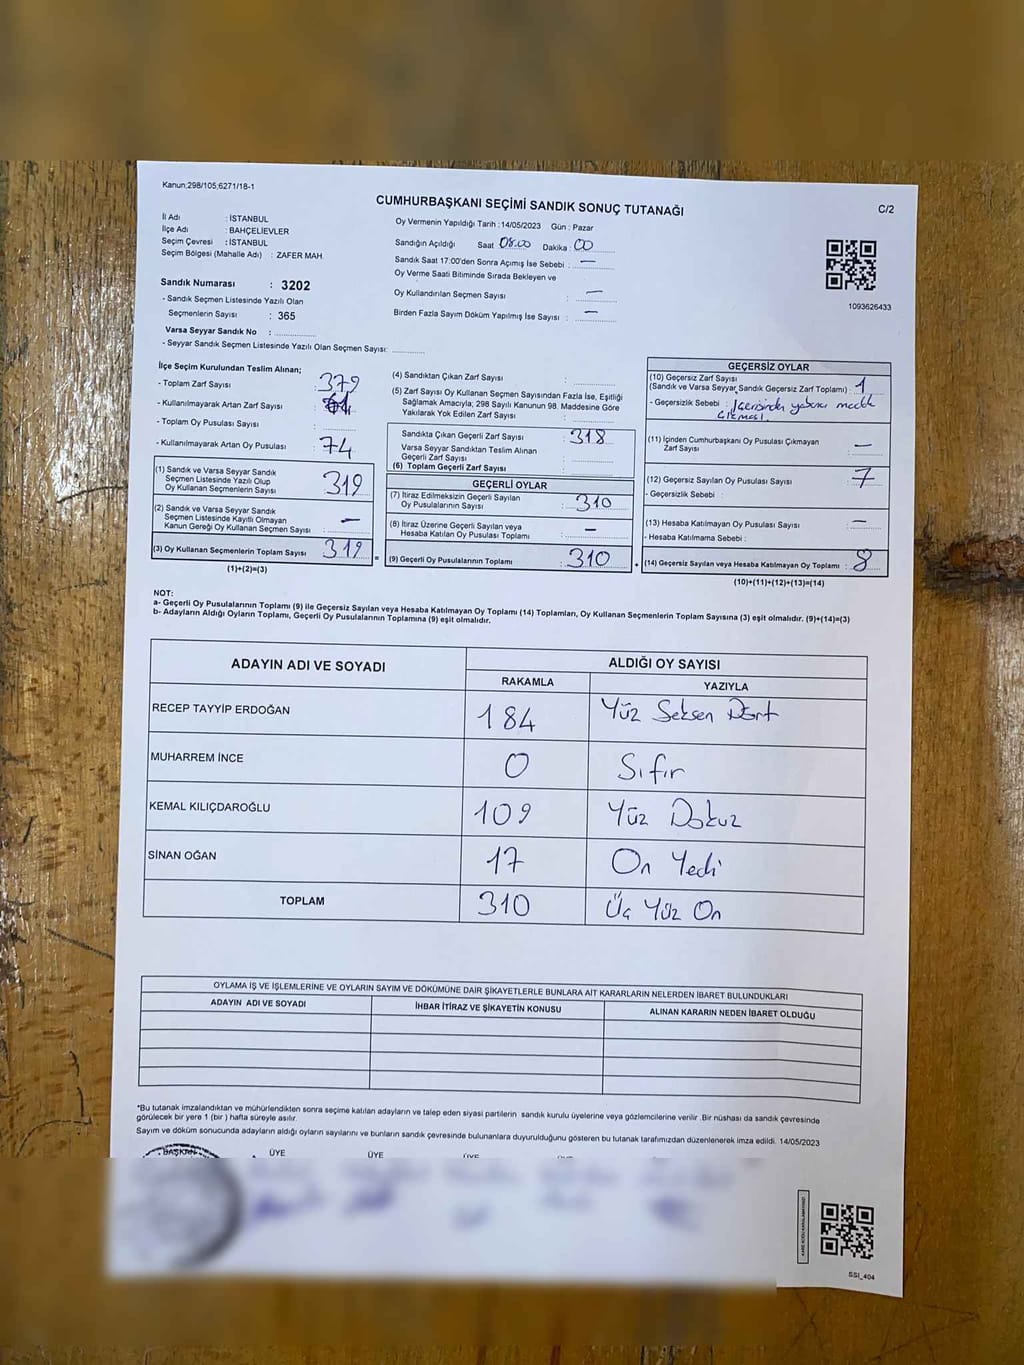 Kanun;298/105;6271/18-1
CUMHURBAŞKANI SEÇİMİ SANDIK SONUÇ TUTANAĞI
C/2
İl Adı : İSTANBUL
İlçe Adı : BAHÇELİEVLER
Seçim Çevresi : İSTANBUL
Seçim Bölgesi (Mahalle Adı) : ZAFER MAH.
Oy Vermenin Yapıldığı Tarih : 14/05/2023 Gün : Pazar
Sandığın Açıldığı Saat 08.00 Dakika : 00
Sandık Saat 17:00'den Sonra Açımış İse Sebebi : —
Oy Verme Saati Bitiminde Sırada Bekleyen ve
Oy Kullandırılan Seçmen Sayısı : —
Birden Fazla Sayım Döküm Yapılmış İse Sayısı : —
1093626433
Sandık Numarası : 3202
- Sandık Seçmen Listesinde Yazılı Olan
Seçmenlerin Sayısı : 365
Varsa Seyyar Sandık No :
- Seyyar Sandık Seçmen Listesinde Yazılı Olan Seçmen Sayısı:
İlçe Seçim Kurulundan Teslim Alınan;
- Toplam Zarf Sayısı : 379
- Kullanılmayarak Artan Zarf Sayısı :
- Toplam Oy Pusulası Sayısı :
- Kullanılmayarak Artan Oy Pusulası : 74
(1) Sandık ve Varsa Seyyar Sandık
Seçmen Listesinde Yazılı Olup
Oy Kullanan Seçmenlerin Sayısı : 319
(2) Sandık ve Varsa Seyyar Sandık
Seçmen Listesinde Kayıtlı Olmayan
Kanun Gereği Oy Kullanan Seçmen Sayısı : —
(3) Oy Kullanan Seçmenlerin Toplam Sayısı : 319
(1)+(2)=(3)
(4) Sandıktan Çıkan Zarf Sayısı :
(5) Zarf Sayısı Oy Kullanan Seçmen Sayısından Fazla İse, Eşitliği
Sağlamak Amacıyla; 298 Sayılı Kanunun 98. Maddesine Göre
Yakılarak Yok Edilen Zarf Sayısı :
Sandıkta Çıkan Geçerli Zarf Sayısı : 318
Varsa Seyyar Sandıktan Teslim Alınan
Geçerli Zarf Sayısı :
(6) Toplam Geçerli Zarf Sayısı :
GEÇERLİ OYLAR
(7) İtiraz Edilmeksizin Geçerli Sayılan
Oy Pusulalarının Sayısı : 310
(8) İtiraz Üzerine Geçerli Sayılan veya
Hesaba Katılan Oy Pusulası Toplamı : —
(9) Geçerli Oy Pusulalarının Toplamı : 310
GEÇERSİZ OYLAR
(10) Geçersiz Zarf Sayısı
(Sandık ve Varsa Seyyar Sandık Geçersiz Zarf Toplamı) : 1
- Geçersizlik Sebebi : İçerisinden yabancı madde
çıkması.
(11) İçinden Cumhurbaşkanı Oy Pusulası Çıkmayan
Zarf Sayısı : —
(12) Geçersiz Sayılan Oy Pusulası Sayısı : 7
- Geçersizlik Sebebi :
(13) Hesaba Katılmayan Oy Pusulası Sayısı : —
- Hesaba Katılmama Sebebi :
(14) Geçersiz Sayılan veya Hesaba Katılmayan Oy Toplamı : 8
(10)+(11)+(12)+(13)=(14)
NOT:
a- Geçerli Oy Pusulalarının Toplamı (9) ile Geçersiz Sayılan veya Hesaba Katılmayan Oy Toplamı (14) Toplamları, Oy Kullanan Seçmenlerin Toplam Sayısına (3) eşit olmalıdır. (9)+(14)=(3)
b- Adayların Aldığı Oyların Toplamı, Geçerli Oy Pusulalarının Toplamına (9) eşit olmalıdır.
ADAYIN ADI VE SOYADI
ALDIĞI OY SAYISI
RAKAMLA YAZIYLA
RECEP TAYYİP ERDOĞAN 184 Yüz Seksen Dört
MUHARREM İNCE 0 Sıfır
KEMAL KILIÇDAROĞLU 109 Yüz Dokuz
SİNAN OĞAN 17 On Yedi
TOPLAM 310 Üç Yüz On
OYLAMA İŞ VE İŞLEMLERİNE VE OYLARIN SAYIM VE DÖKÜMÜNE DAİR ŞİKAYETLERLE BUNLARA AİT KARARLARIN NELERDEN İBARET BULUNDUKLARI
ADAYIN ADI VE SOYADI İHBAR İTİRAZ VE ŞİKAYETİN KONUSU ALINAN KARARIN NEDEN İBARET OLDUĞU
*Bu tutanak imzalandıktan ve mühürlendikten sonra seçime katılan adayların ve talep eden siyasi partilerin sandık kurulu üyelerine veya gözlemcilerine verilir .Bir nüshası da sandık çevresinde
görülecek bir yere 1 (bir ) hafta süreyle asılır.
Sayım ve döküm sonucunda adayların aldığı oyların sayılarını ve bunların sandık çevresinde bulunanlara duyurulduğunu gösteren bu tutanak tarafımızdan düzenlenerek imza edildi. 14/05/2023
BAŞKAN ÜYE ÜYE
SSI_404